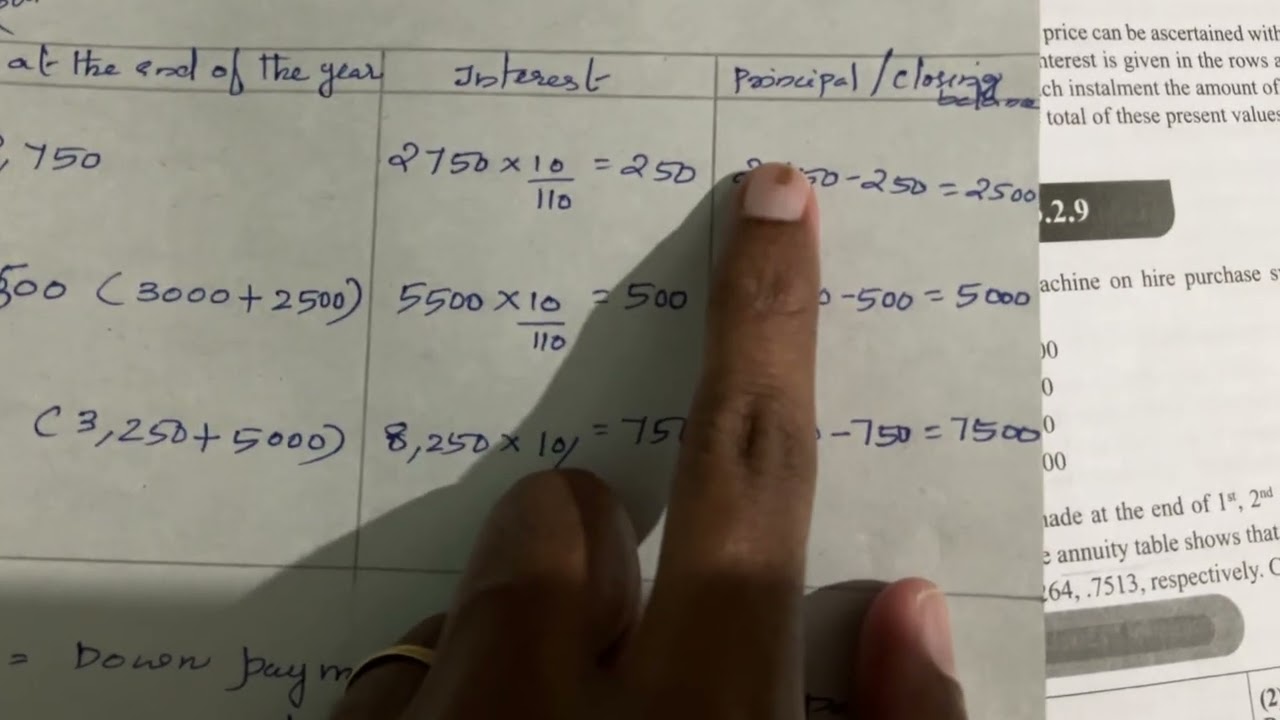 at the end of the year Interest Principal / closing
balance
,750 2750 × 10/110 = 250 50 - 250 = 2500
500 (3000 + 2500) 5500 × 10/110 = 500 0 - 500 = 5000
(3,250 + 5000) 8,250 × 10/ = 75 - 750 = 7500
= Down paym
price can be ascertained with
nterest is given in the rows a
ch instalment the amount of
total of these present values
.2.9
achine on hire purchase s
00
0
0
00
made at the end of 1st, 2nd
annuity table shows that
264, .7513, respectively. C
(2